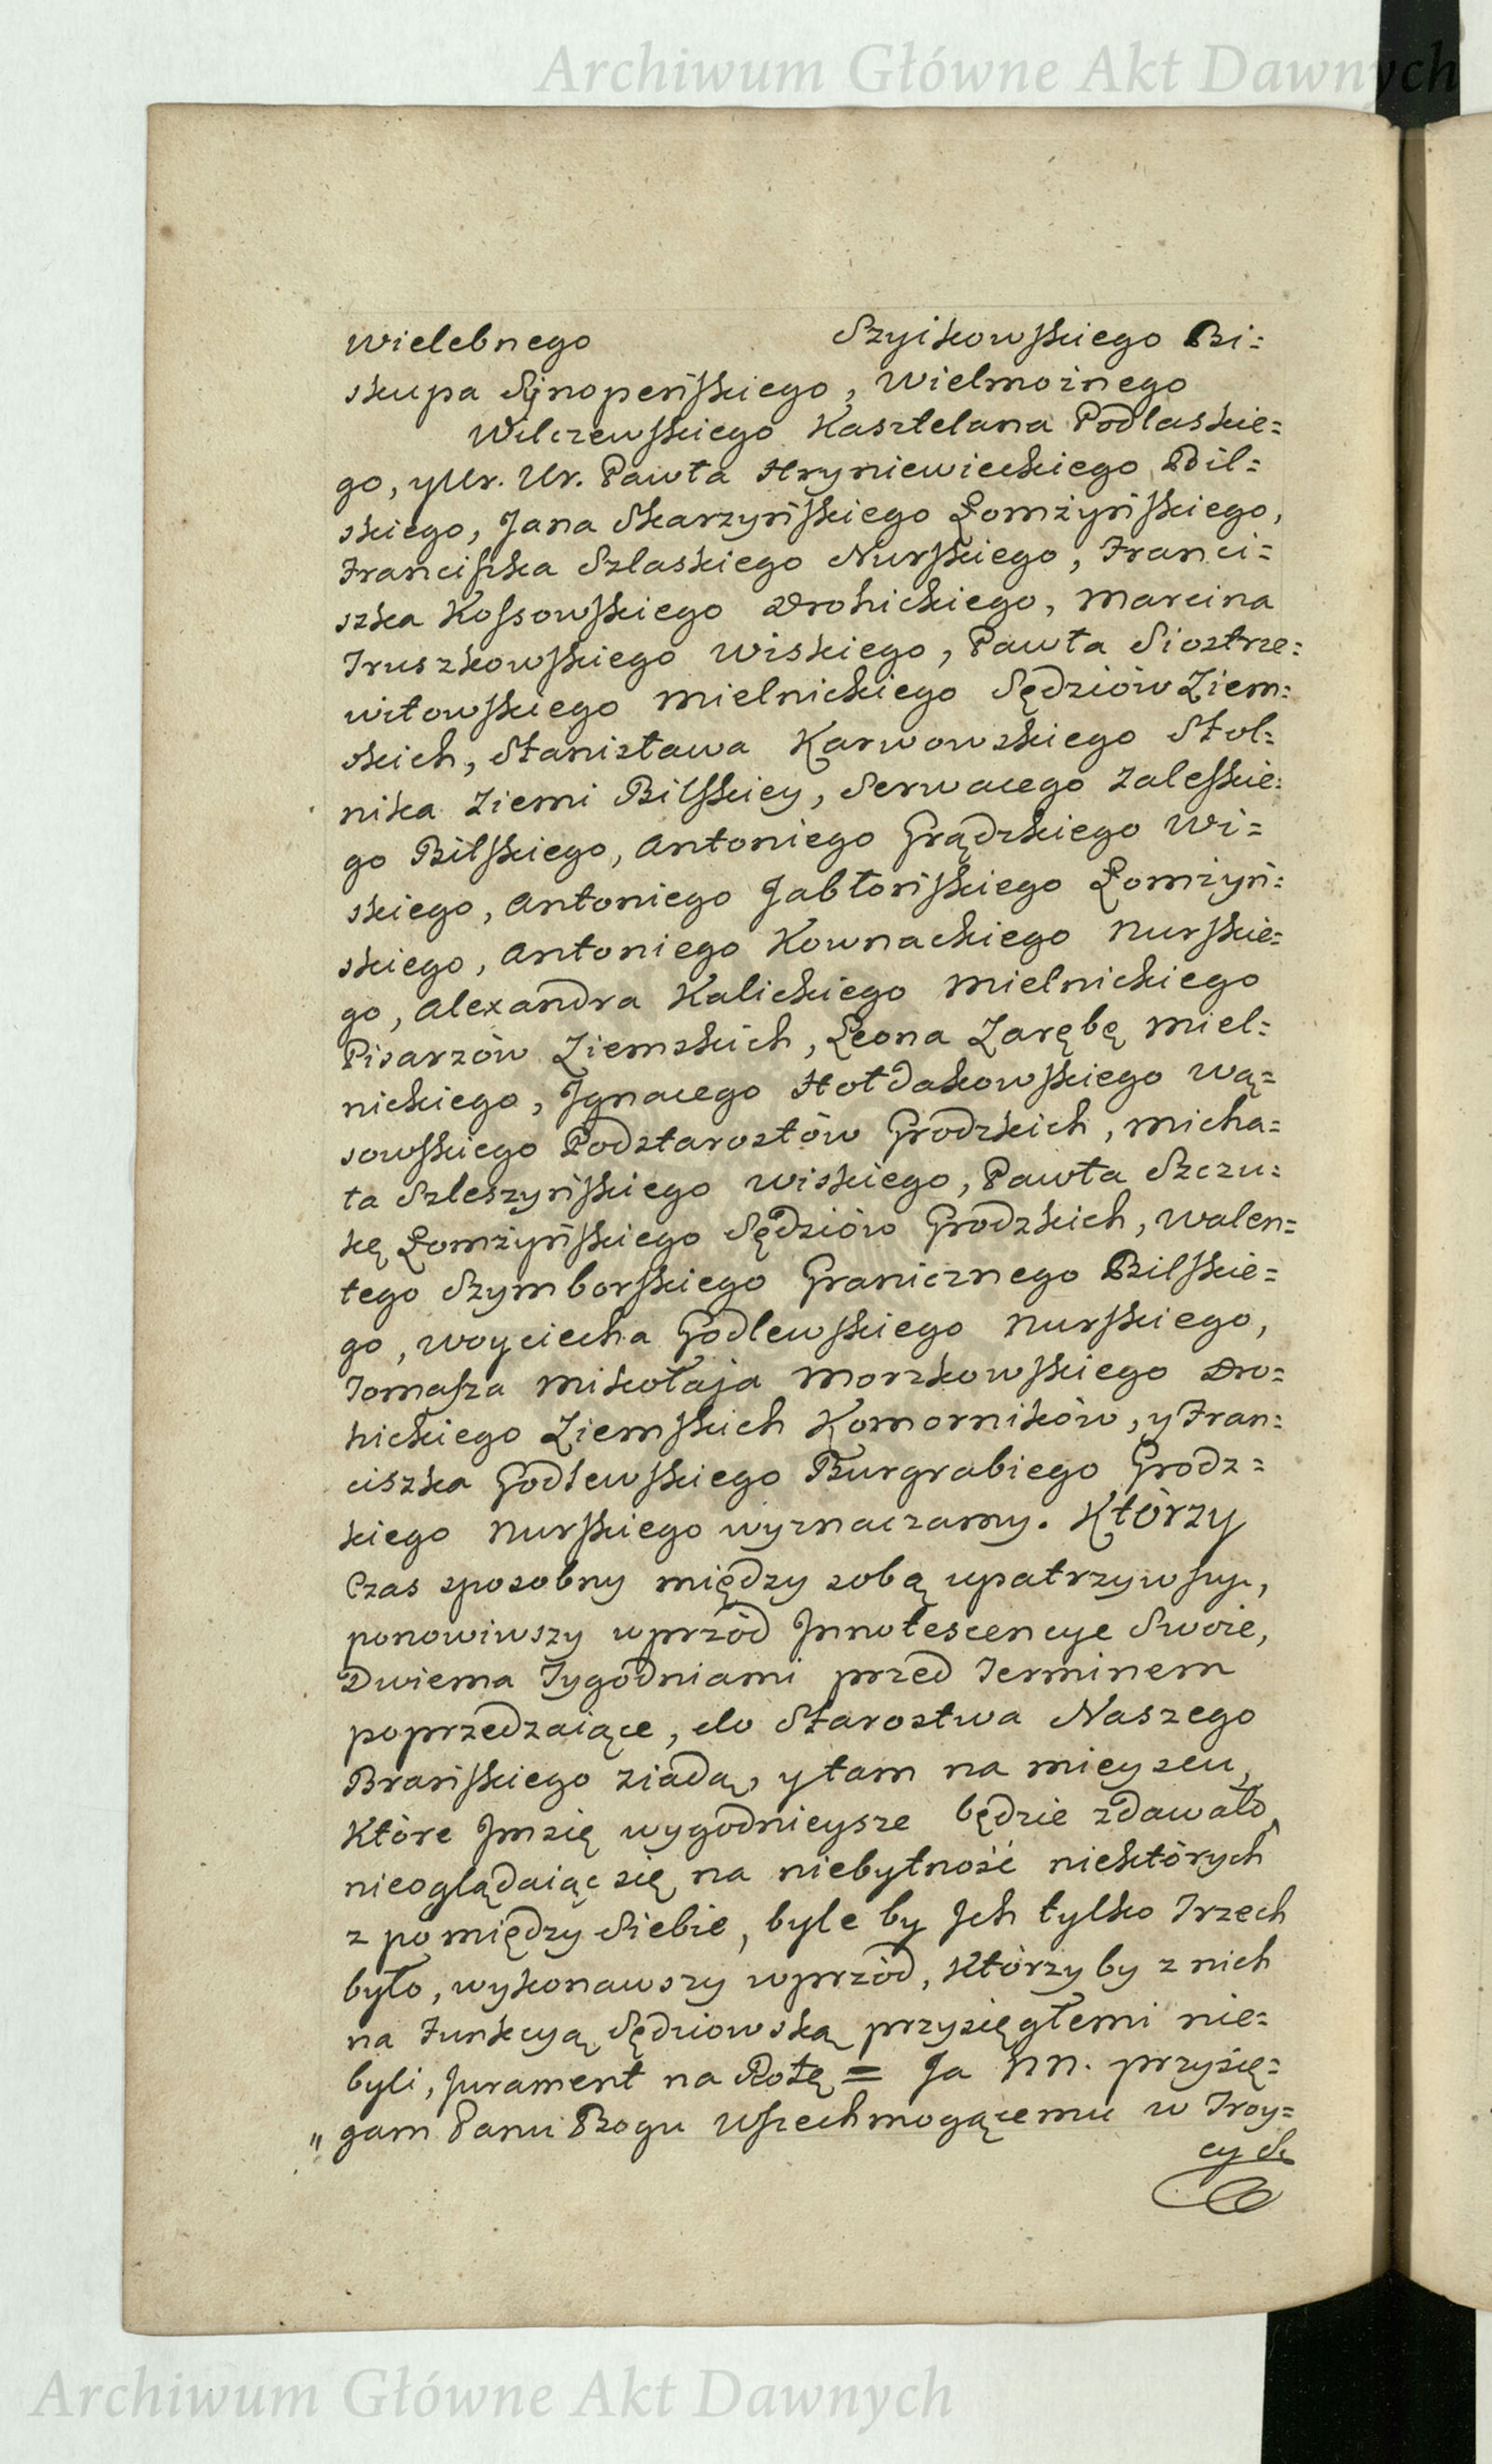 Archiwum Główne Akt Dawnych
Wielebnego Szyikowskiego Bi=
skupa Synopeńskiego, Wielmożnego
Wilczewskiego Kasztelana Podlaskie=
go, y Ur. Ur. Pawła Hryniewieckiego Bil=
skiego, Jana Skarzyńskiego Łomżyńskiego,
Franciszka Szlaskiego Nurskiego, Franci=
szka Kossowskiego Drohickiego, Marcina
Truszkowskiego Wiskiego, Pawła Siostrze=
witowskiego Mielnickiego Sędziów Ziem=
skich, Stanisława Karwowskiego Stol=
nika Ziemi Bilskiey, Serwacego Zaleskie=
go Bilskiego, Antoniego Grądzkiego Wi=
skiego, Antoniego Jabłońskiego Łomżyń=
skiego, Antoniego Kownackiego Nurskie=
go, Alexandra Kalickiego Mielnickiego
Pisarzów Ziemskich, Leona Zarębę Miel=
nickiego, Ignacego Hołdakowskiego Wą=
sowskiego Podstarostów Grodzkich, Micha=
ła Szleszyńskiego Wiskiego, Pawła Szczu=
kę Łomżyńskiego Sędziów Grodzkich, Walen=
tego Szymborskiego Granicznego Bilskie=
go, Woyciecha Godlewskiego Nurskiego,
Tomasza Mikołaja Morzkowskiego Dro=
hickiego Ziemskich Komorników, y Fran=
ciszka Godlewskiego Burgrabiego Grodz=
kiego Nurskiego wyznaczamy. Którzy
Czas sposobny między sobą upatrzywszy,
ponowiwszy wprzód Innotescencye Swoie,
Dwiema Tygodniami przed Terminem
poprzedzaiące, do Starostwa Naszego
Brańskiego ziadą, y tam na mieyscu,
Które Im się wygodnieysze będzie zdawało,
nieoglądaiąc się na niebytność niektórych
z pomiędzy Siebie, byle by Ich tylko Trzech
było, wykonawszy wprzód, Którzy by z nich
na Funkcyą Sędziowską przysięgłemi nie=
byli, Jurament na Rotę = Ja NN. przysię=
" gam Panu Bogu Wszechmogącemu w Troy=
cy S.
Archiwum Główne Akt Dawnych